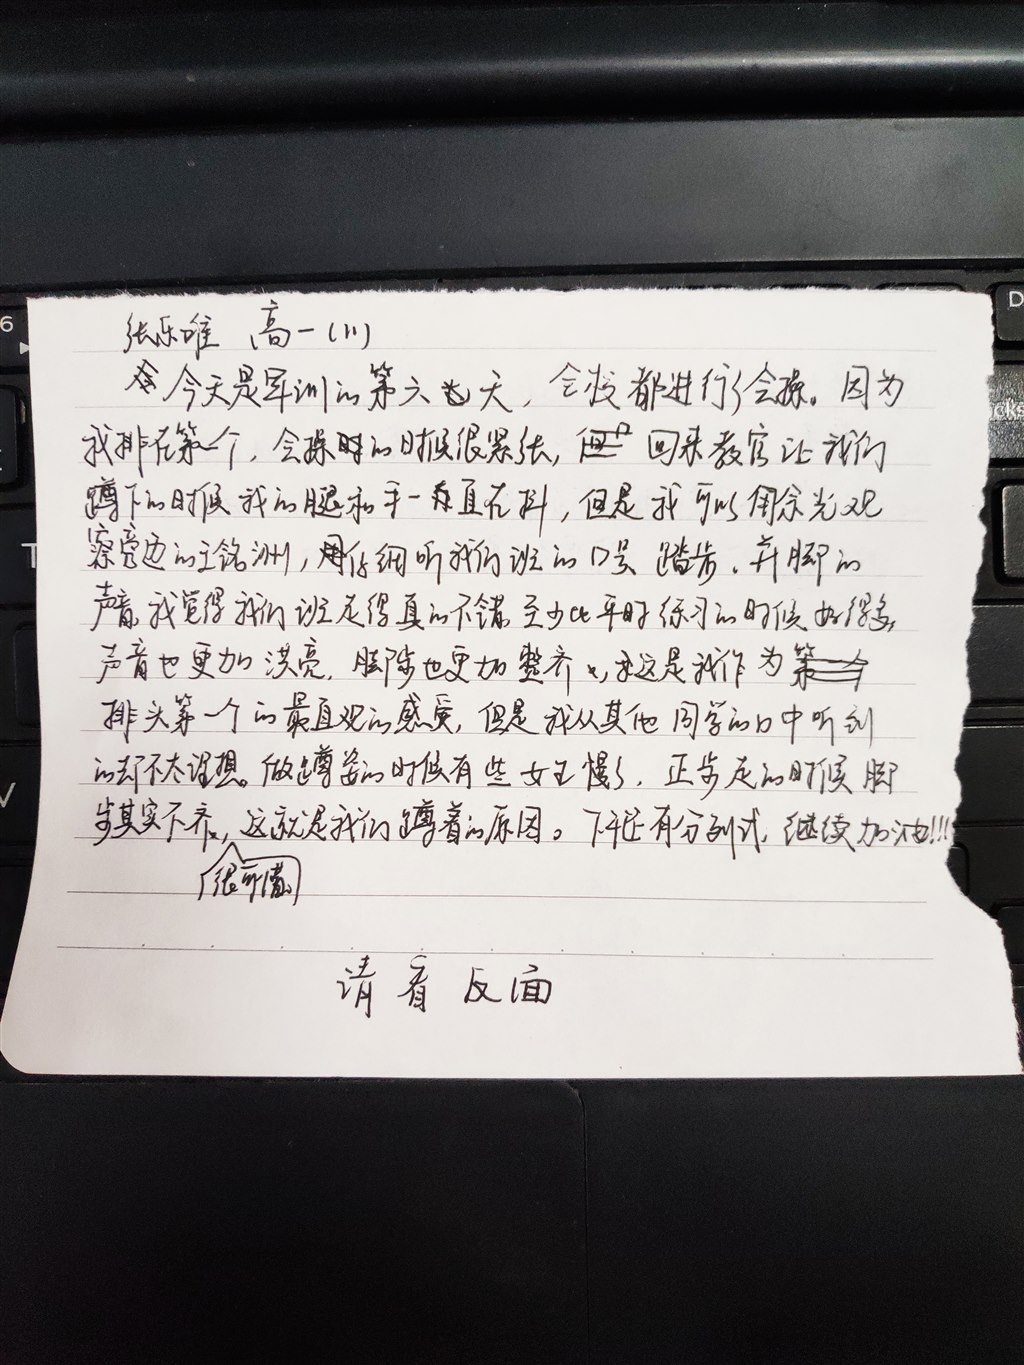 张乐唯 高一(11)
今天是军训的第六天，全校都进行了会操。因为
我排在第一个，会操时的时候很紧张，回来教官让我们
蹲下的时候我的腿和手一直在抖，但是我可以用余光观
察旁边的王铭洲，仔细听我们班的口号、踏步、并脚的
声音。我觉得我们班走得真的不错，至少比平时练习的时候好得多，
声音也更加洪亮，脚步也更加整齐，这是我作为
排头第一个的最直观的感受，但是我从其他同学的口中听到
的却不太理想。做蹲姿的时候有些女生慢了，正步走的时候脚
步其实不齐，这就是我们蹲着的原因。下午还有分列式，继续加油!!!
很可惜
请看反面